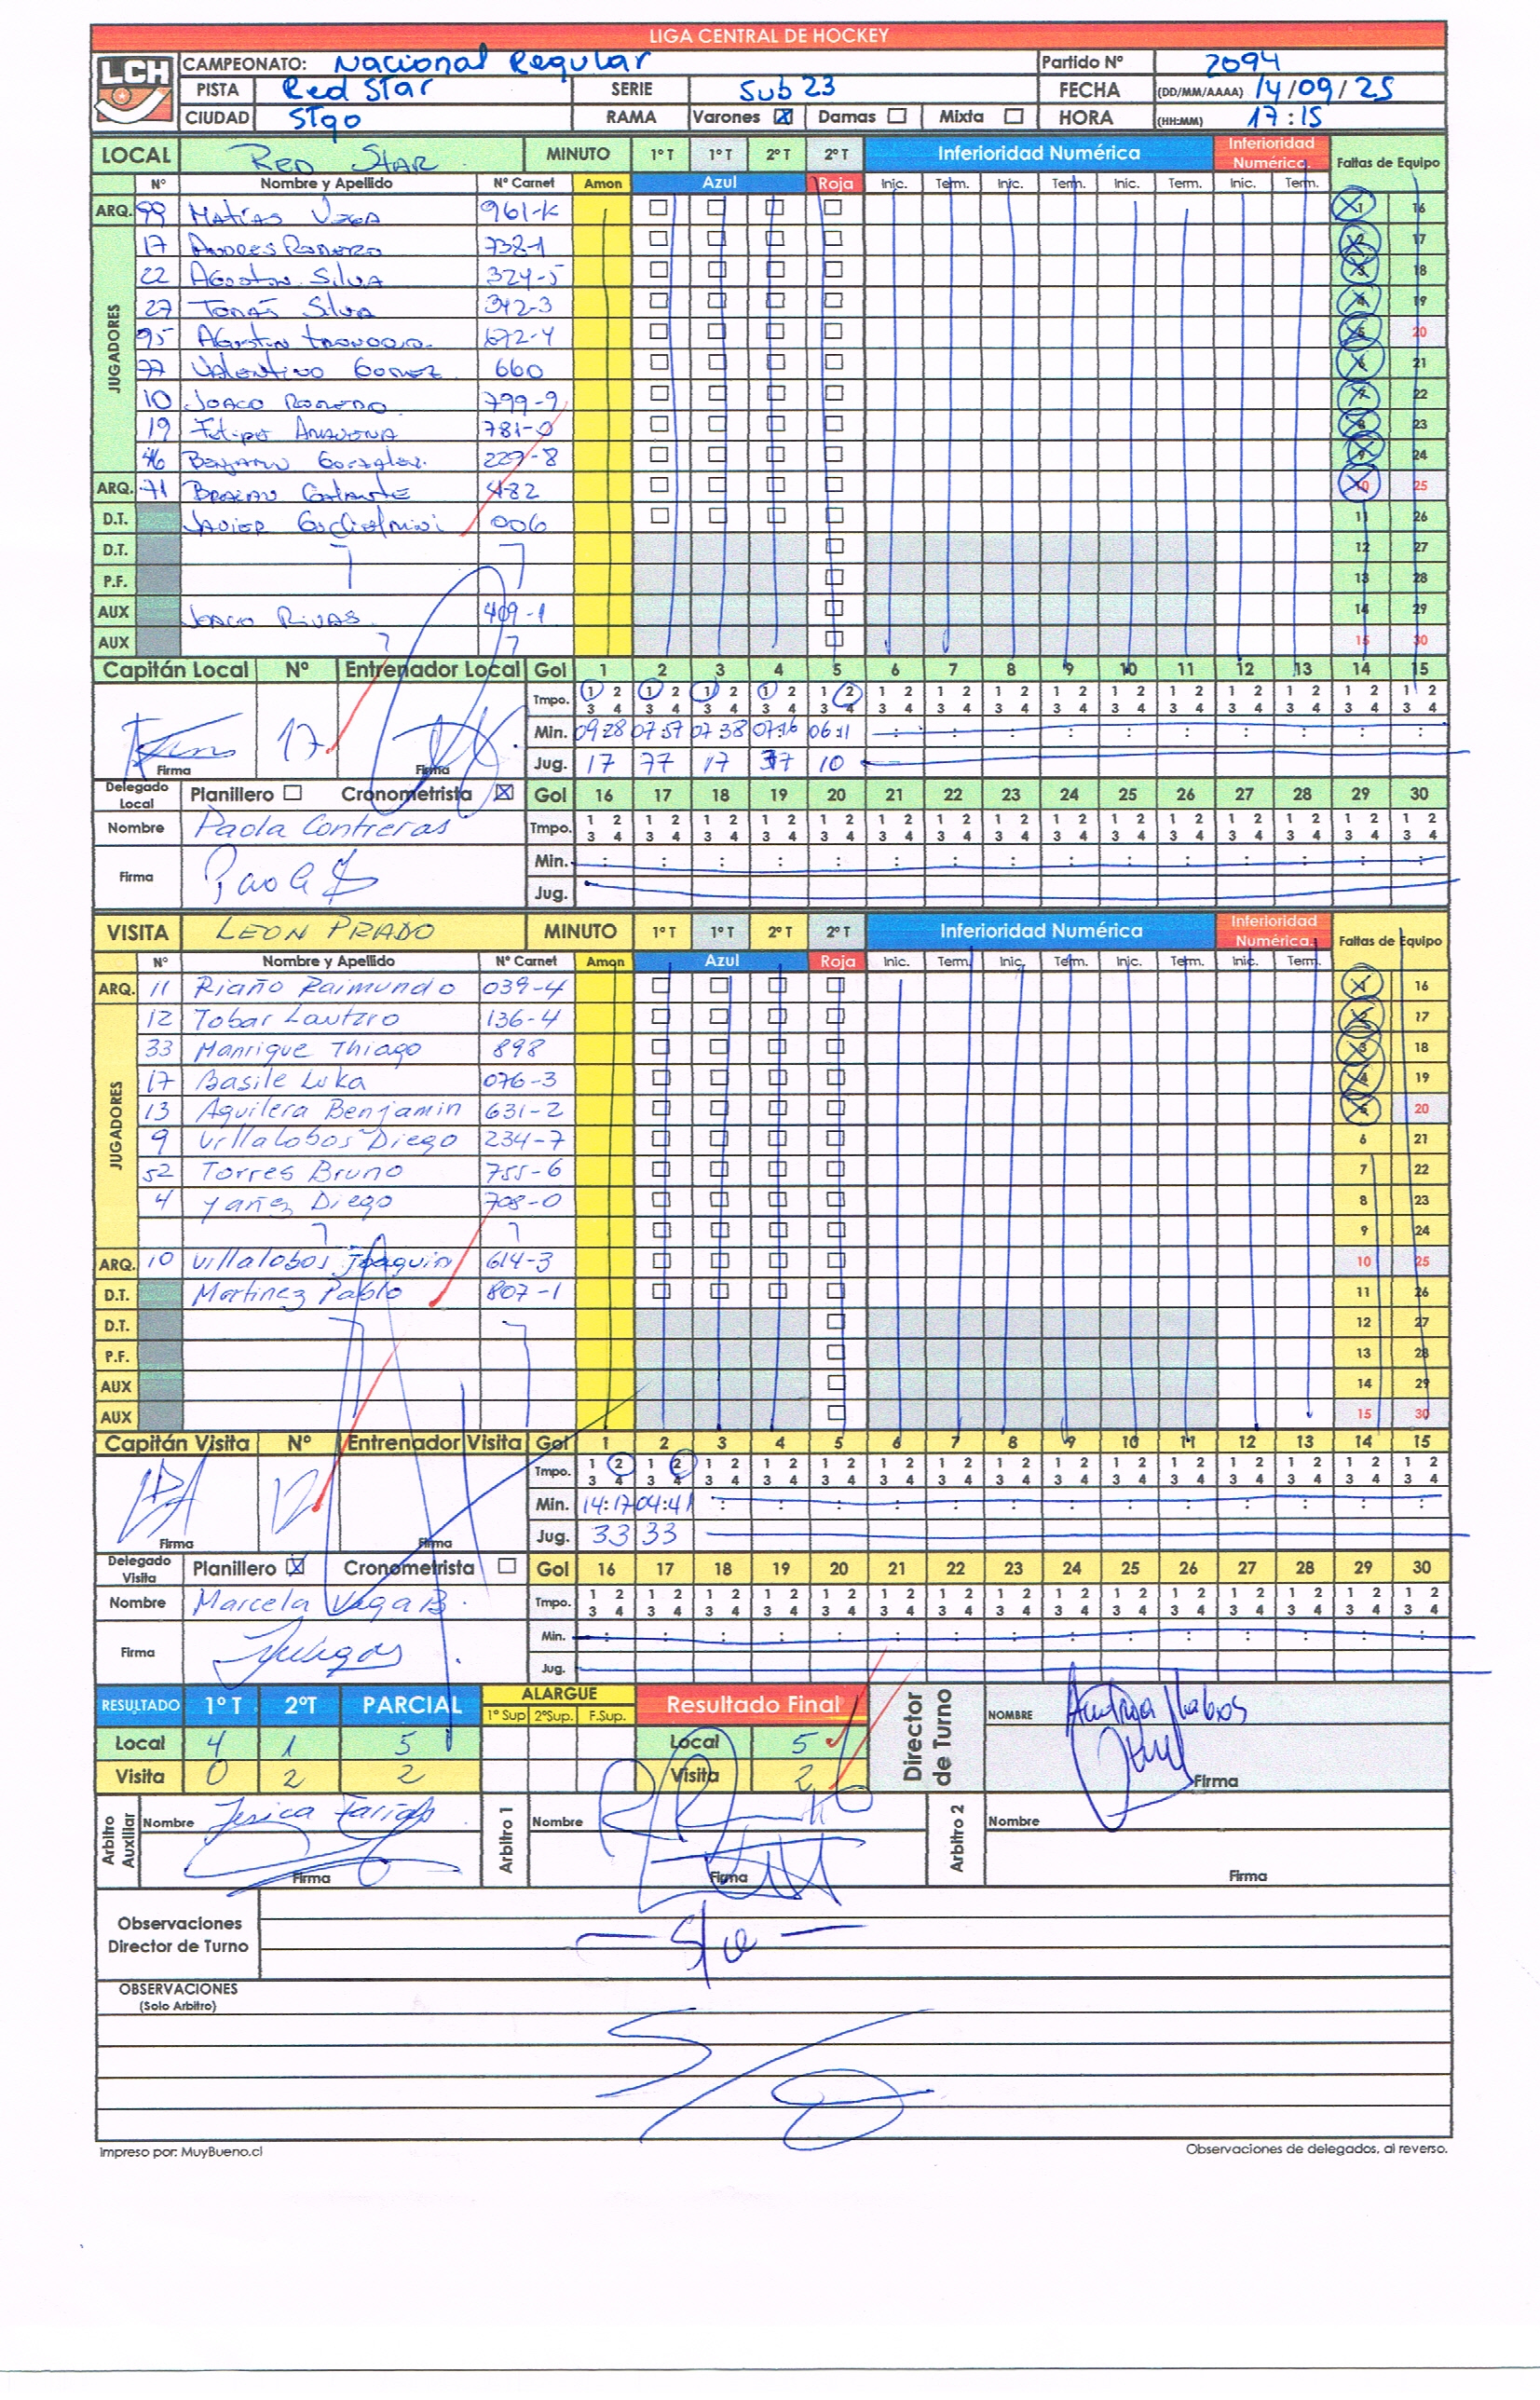 LIGA CENTRAL DE HOCKEY
LCH
CAMPEONATO: Nacional Regular Partido Nº 2094
PISTA Red Star SERIE Sub 23 FECHA (DD/MM/AAAA) 14/09/25
CIUDAD Stgo RAMA Varones Damas Mixta HORA (HH:MM) 17:15
LOCAL RED STAR MINUTO 1º T 1º T 2º T 2º T Inferioridad Numérica Inferioridad Numérica Faltas de Equipo
Nº Nombre y Apellido Nº Carnet Amon Azul Roja Inic. Term. Inic. Term. Inic. Term. Inic. Term.
ARQ. 99 Matías Vega 961-K 1 16
JUGADORES
17 Andres Romero 738-1 2 17
22 Agostin Silva 324-5 3 18
27 Tomás Silva 342-3 4 19
95 Agostin 672-4 5 20
77 Valentino Gomez 660 6 21
10 Joaco Romero 799-9 7 22
19 Felipe Aravena 781-0 8 23
46 Benjamin Gonzalez 227-8 9 24
ARQ. 71 482 10 25
D.T. Javier Guglielmini 006 11 26
D.T. 12 27
P.F. 13 28
AUX Joaco Rivas 409-1 14 29
AUX 15 30
Capitán Local Nº Entrenador Local Gol 1 2 3 4 5 6 7 8 9 10 11 12 13 14 15
Tmpo. 1 2 3 4 1 2 3 4 1 2 3 4 1 2 3 4 1 2 3 4 1 2 3 4 1 2 3 4 1 2 3 4 1 2 3 4 1 2 3 4 1 2 3 4 1 2 3 4 1 2 3 4 1 2 3 4 1 2 3 4
17 Min. 09:28 07:57 07:38 07:16 06:11
Firma Firma Jug. 17 77 17 10
Delegado Local Planillero Cronometrista Gol 16 17 18 19 20 21 22 23 24 25 26 27 28 29 30
Nombre Paola Contreras Tmpo. 1 2 3 4 1 2 3 4 1 2 3 4 1 2 3 4 1 2 3 4 1 2 3 4 1 2 3 4 1 2 3 4 1 2 3 4 1 2 3 4 1 2 3 4 1 2 3 4 1 2 3 4 1 2 3 4 1 2 3 4
Firma Paola Min.
Jug.
VISITA LEON PRADO MINUTO 1º T 1º T 2º T 2º T Inferioridad Numérica Inferioridad Numérica Faltas de Equipo
Nº Nombre y Apellido Nº Carnet Amon Azul Roja Inic. Term. Inic. Term. Inic. Term. Inic. Term.
ARQ. 11 Riaño Raimundo 039-4 1 16
JUGADORES
12 Tobar Lautaro 136-4 2 17
33 Manrique Thiago 898 3 18
17 Basile Luka 076-3 4 19
13 Aguilera Benjamin 631-2 5 20
9 Villalobos Diego 234-7 6 21
52 Torres Bruno 755-6 7 22
4 Yañez Diego 708-0 8 23
9 24
ARQ. 10 Villalobos Joaquin 614-3 10 25
D.T. Martinez Pablo 807-1 11 26
D.T. 12 27
P.F. 13 28
AUX 14 29
AUX 15 30
Capitán Visita Nº Entrenador Visita Gol 1 2 3 4 5 6 7 8 9 10 11 12 13 14 15
Tmpo. 1 2 3 4 1 2 3 4 1 2 3 4 1 2 3 4 1 2 3 4 1 2 3 4 1 2 3 4 1 2 3 4 1 2 3 4 1 2 3 4 1 2 3 4 1 2 3 4 1 2 3 4 1 2 3 4 1 2 3 4
12 Min. 14:17 04:41
Firma Firma Jug. 33 33
Delegado Visita Planillero Cronometrista Gol 16 17 18 19 20 21 22 23 24 25 26 27 28 29 30
Nombre Marcela Vega B. Tmpo. 1 2 3 4 1 2 3 4 1 2 3 4 1 2 3 4 1 2 3 4 1 2 3 4 1 2 3 4 1 2 3 4 1 2 3 4 1 2 3 4 1 2 3 4 1 2 3 4 1 2 3 4 1 2 3 4 1 2 3 4
Firma Min.
Jug.
RESULTADO 1º T 2ºT PARCIAL ALARGUE Resultado Final Director de Turno NOMBRE
1º Sup 2ºSup. F.Sup.
Local 4 1 5 Local 5
Visita 0 2 2 Visita 2 Firma
Arbitro Auxiliar Nombre Arbitro 1 Nombre Arbitro 2 Nombre
Firma Firma Firma
Observaciones Director de Turno
OBSERVACIONES
(Solo Arbitro)
Impreso por: MuyBueno.cl Observaciones de delegados, al reverso.